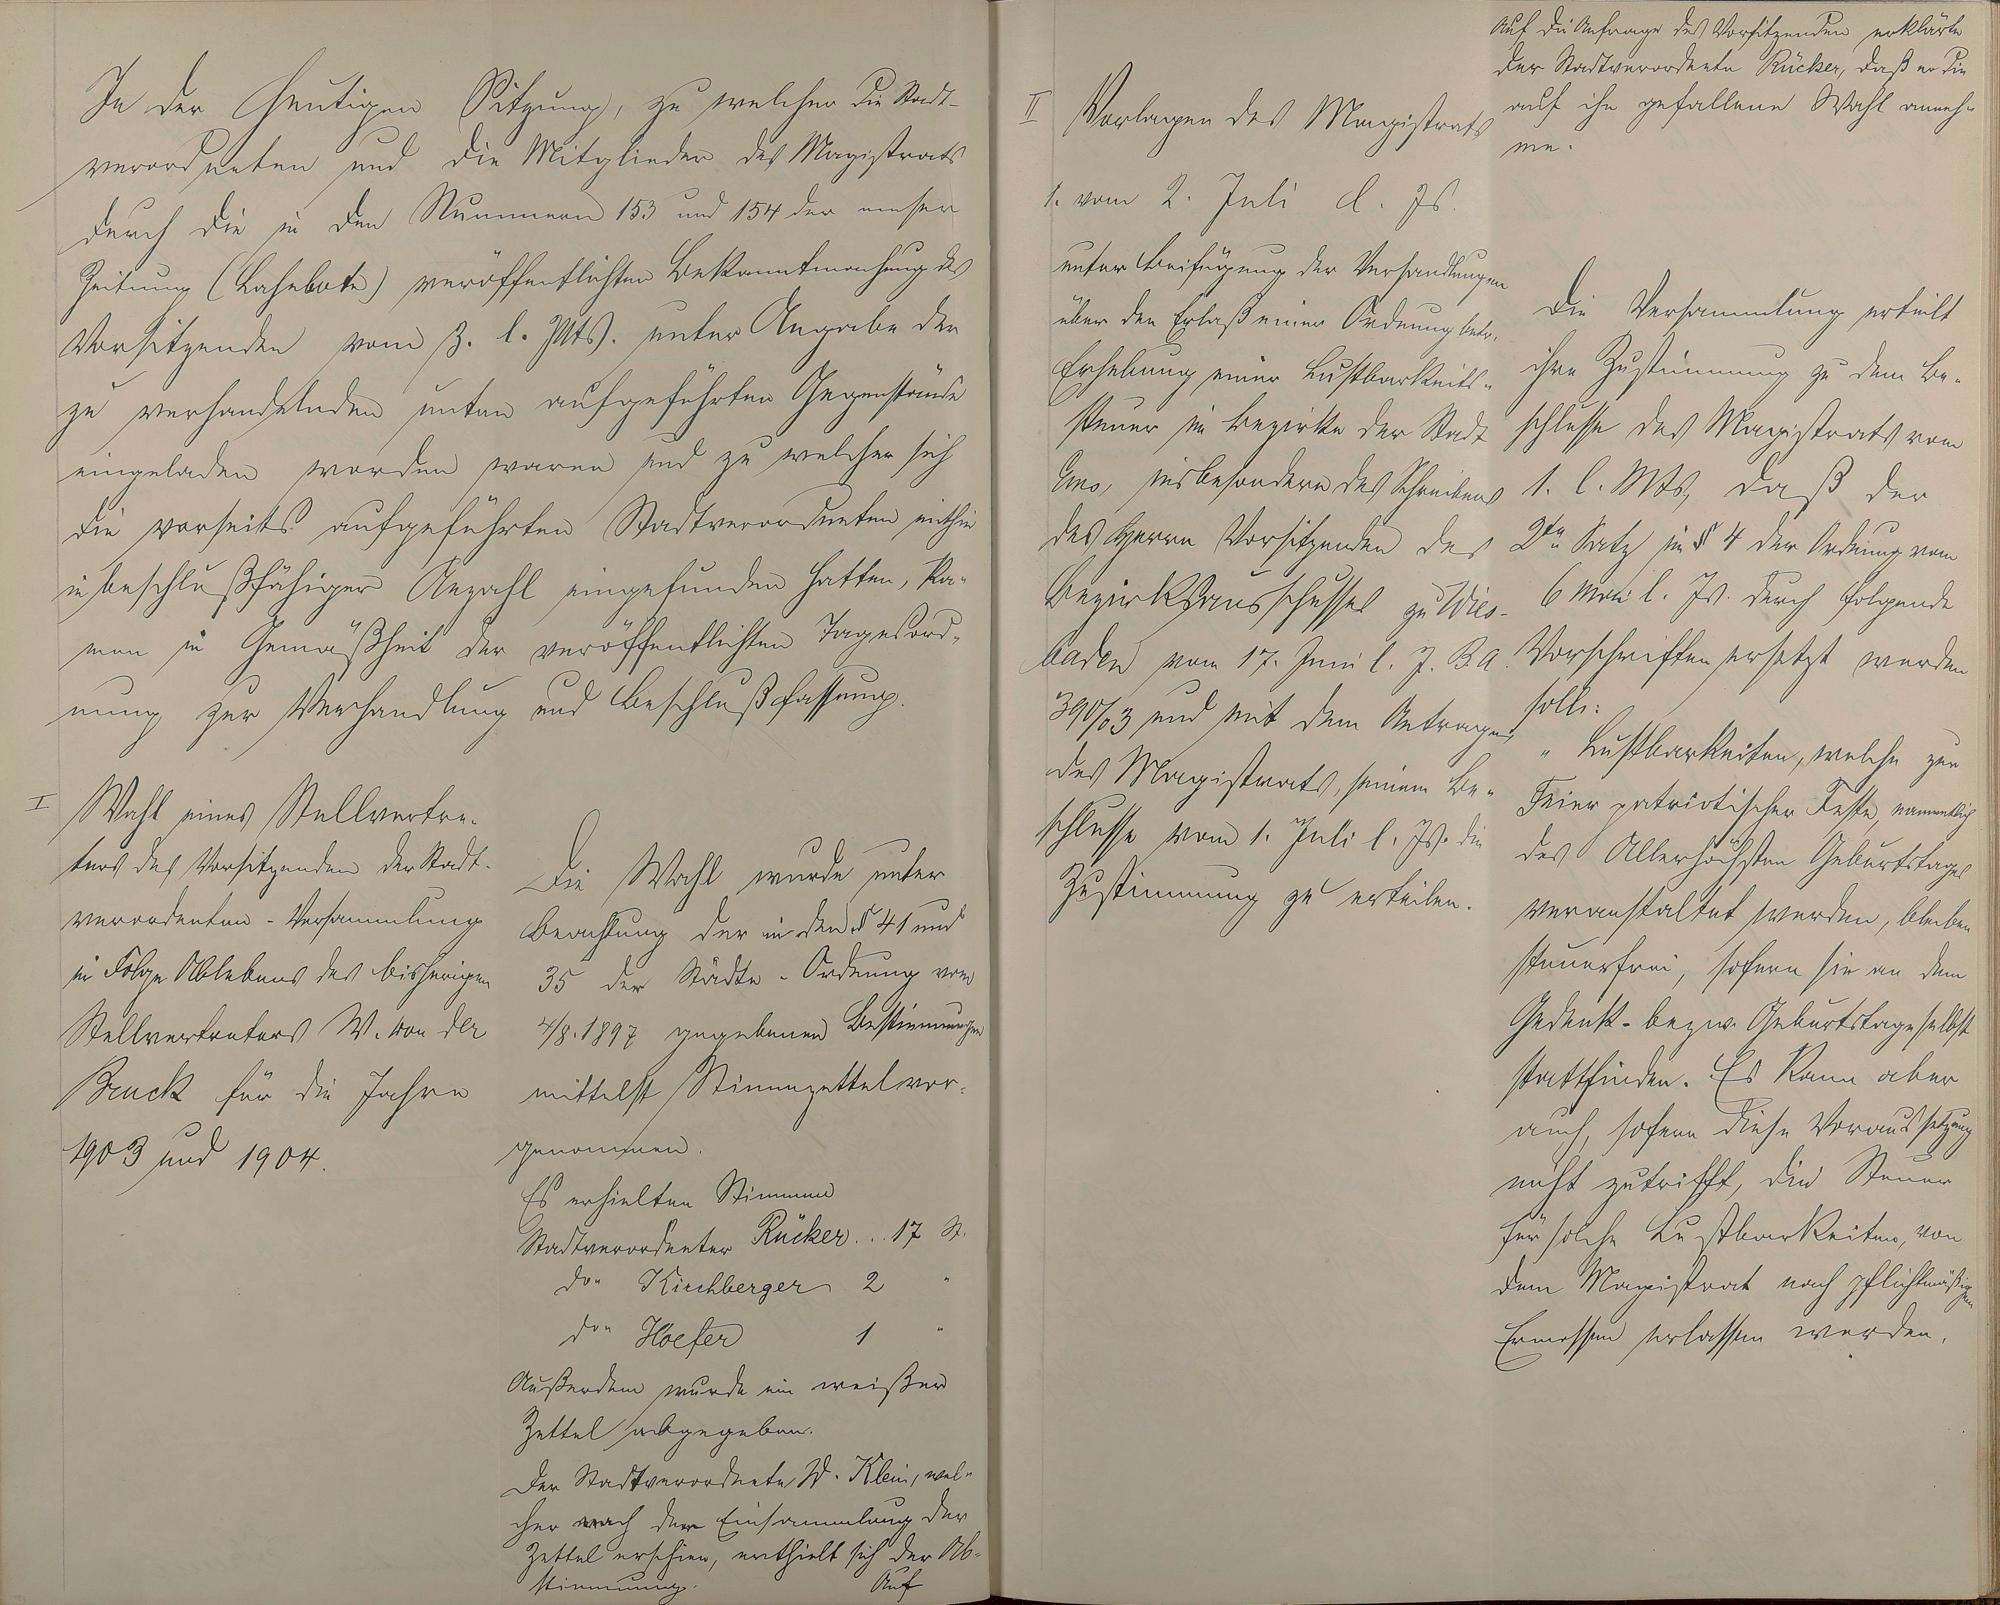 In der heutigen Sitzung, zu welcher die Stadt-
verordneten und die Mitglieder des Magistrats
durch die in den Nummern 153 und 154 der emser
Zeitung (Lahnbote) veröffentlichten Bekanntmachung des
Vorsitzenden vom 3. l. Mts. unter Angabe der
zu verhandelnden unten aufgeführten Gegenstände
eingeladen worden waren und zu welcher sich
die vorseits aufgeführten Stadtverordneten mithin
in beschlußfähiger Anzahl eingefunden hatten, ka-
men in Gemäßheit der veröffentlichten Tagesord-
nung zur Verhandlung und Beschlußfassung.
I Wahl eines Stellvertre-
ters des Vorsitzenden der Stadt-
verordneten-Versammlung
in Folge Ablebens des bisherigen
Stellvertreters W. von der
Bruck für die Jahre
1903 und 1904.
Die Wahl wurde unter
Beachtung der in den § 41 und
35 der Städte-Ordnung vom
4/8. 1897 gegebenen Bestimmungen
mittelst Stimmzettel vor-
genommen.
Es erhielten Stimmen
Stadtverordneter Rücker... 17 St.
do" Kirchberger 2 "
do" Hoefer 1 "
Außerdem wurde ein weißer
Zettel abgegeben.
Der Stadtverordnete W. Klein, wel-
cher nach der Einsammlung der
Zettel erschien, enthielt sich der Ab-
stimmung.
Auf
Auf die Anfrage des Vorsitzenden erklärte
der Stadtverordnete Rücker, daß er die
auf ihn gefallene Wahl anneh-
me.
II Vorlagen des Magistrats
1. vom 2. Juli d. Js.
unter Beifügung der Verhandlungen
über den Erlaß einer Ordnung betr.
Erhebung einer Lustbarkeits-
steuer im Bezirke der Stadt
Ems, insbesondere des Schreibens
des Herrn Vorsitzenden des
Bezirksausschusses zu Wies-
baden vom 17. Juni l. J. B.A.
390/03 und mit dem Antrage
des Magistrats, seinem Be-
schlusse vom 1. Juli l. Js. die
Zustimmung zu erteilen.
Die Versammlung erteilt
ihre Zustimmung zu dem Be-
schlusse des Magistrats vom
1. l. Mts, daß der
2te Satz in § 4 der Ordnung vom
6 Mai l. Js. durch folgende
Vorschriften ersetzt werden
solle:
" Lustbarkeiten, welche zur
Feier patriotischer Feste, namentlich
des Allerhöchsten Geburtstages
veranstaltet werden, bleiben
steuerfrei, sofern sie an dem
Gedenk- bezw. Geburtstage selbst
stattfinden. Es kann aber
auch, sofern diese Voraussetzung
nicht zutrifft, die Steuer
für solche Lustbarkeiten, von
dem Magistrat nach pflichtmäßigem
Ermessen erlassen werden.